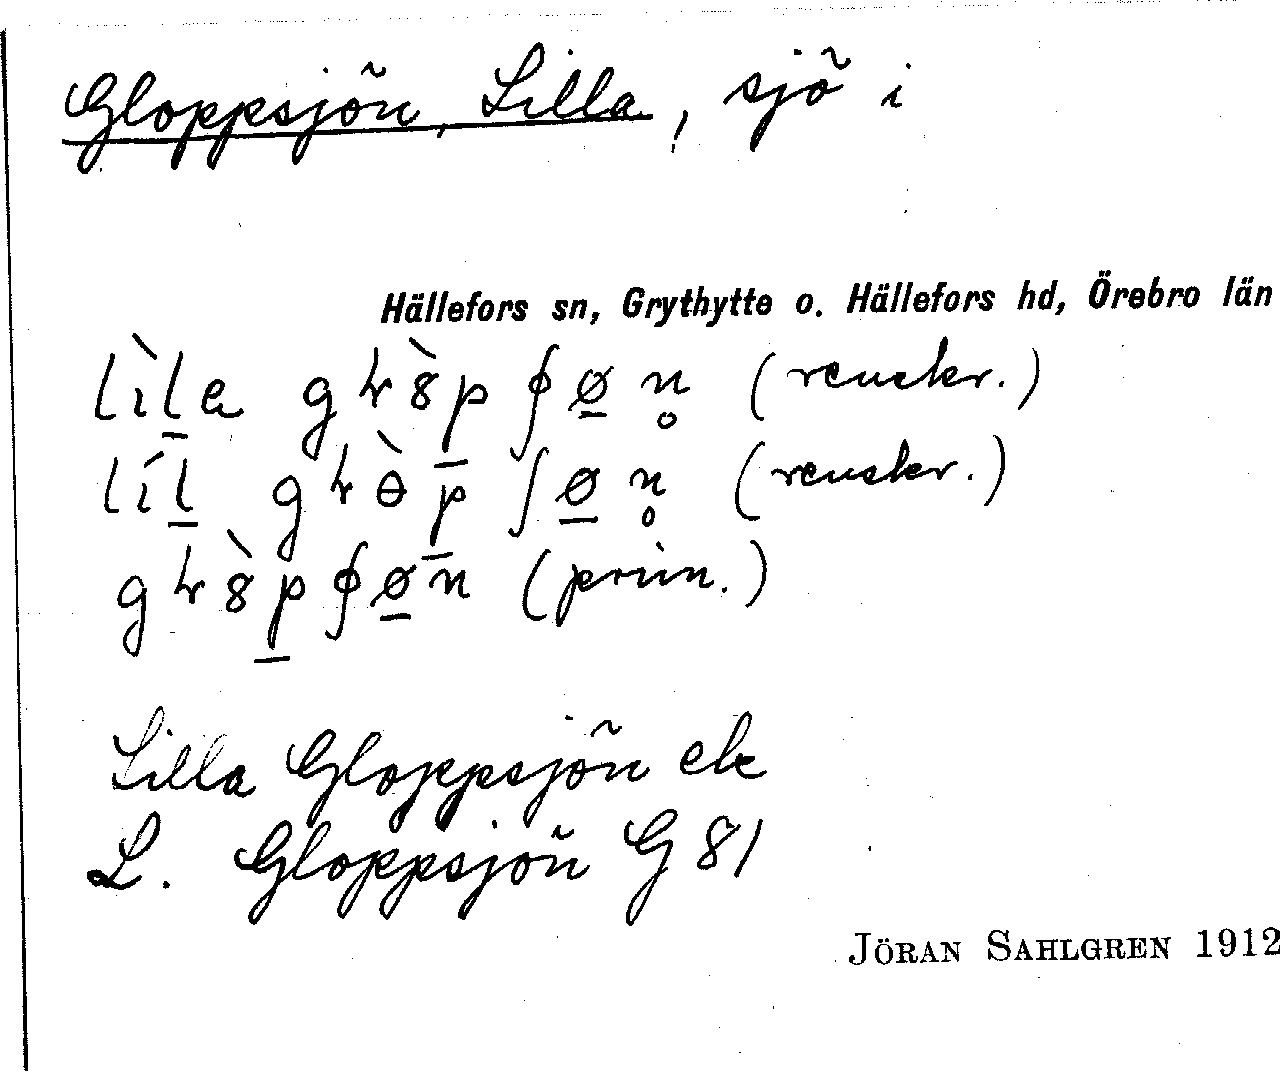 Gloppsjön, Lilla, sjö i
Hällefors sn, Grythytte o. Hällefors hd, Örebro län
(renskr.)
(renskr.)
(prim.)
Lilla Gloppsjön ek
L. Gloppsjön G 81
JÖRAN SAHLGREN 1912